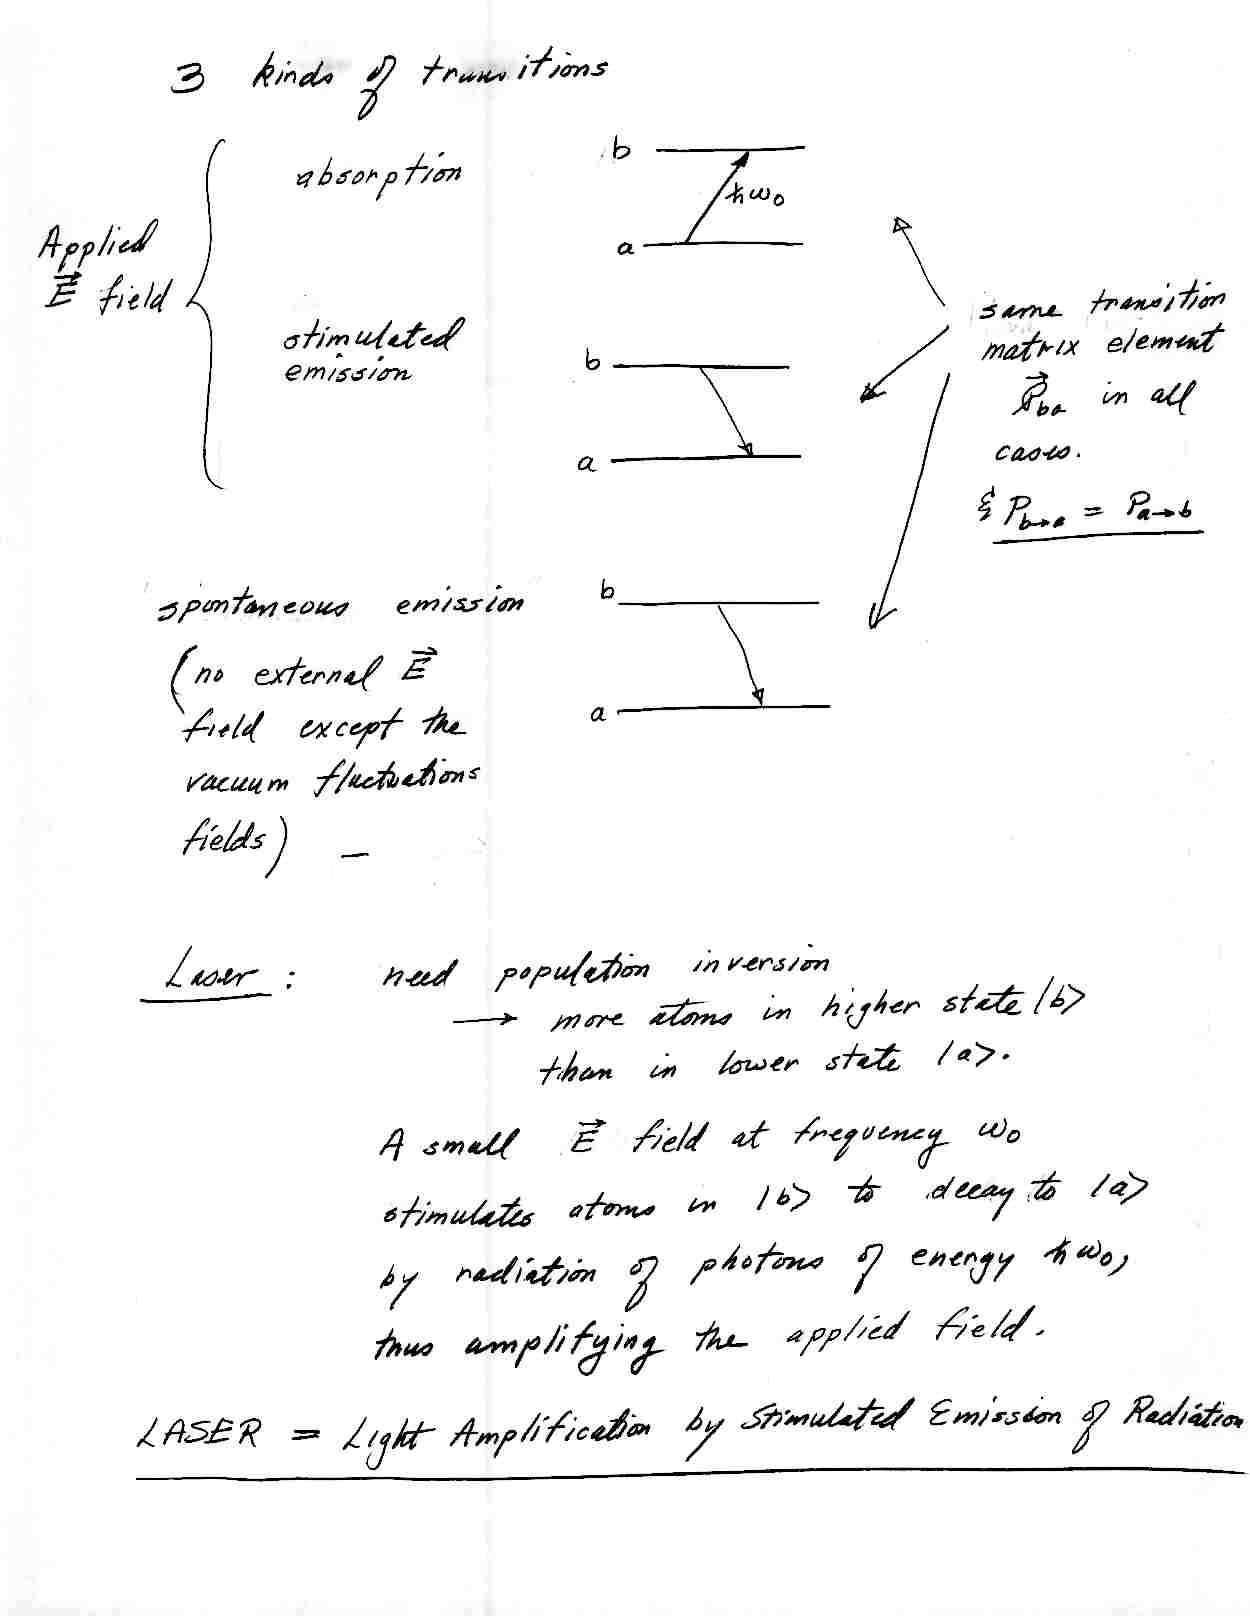 3 kinds of transitions
absorption
b
ħω₀
a
Applied
E⃗ field
stimulated
emission
b
a
same transition
matrix element
P⃗ba in all
cases.
& Pb→a = Pa→b
spontaneous emission
b
a
(no external E⃗
field except the
vacuum fluctuations
fields) —
Laser : need population inversion
→ more atoms in higher state |b>
than in lower state |a>.
A small E⃗ field at frequency ω₀
stimulates atoms in |b> to decay to |a>
by radiation of photons of energy ħω₀,
thus amplifying the applied field.
LASER = Light Amplification by Stimulated Emission of Radiation